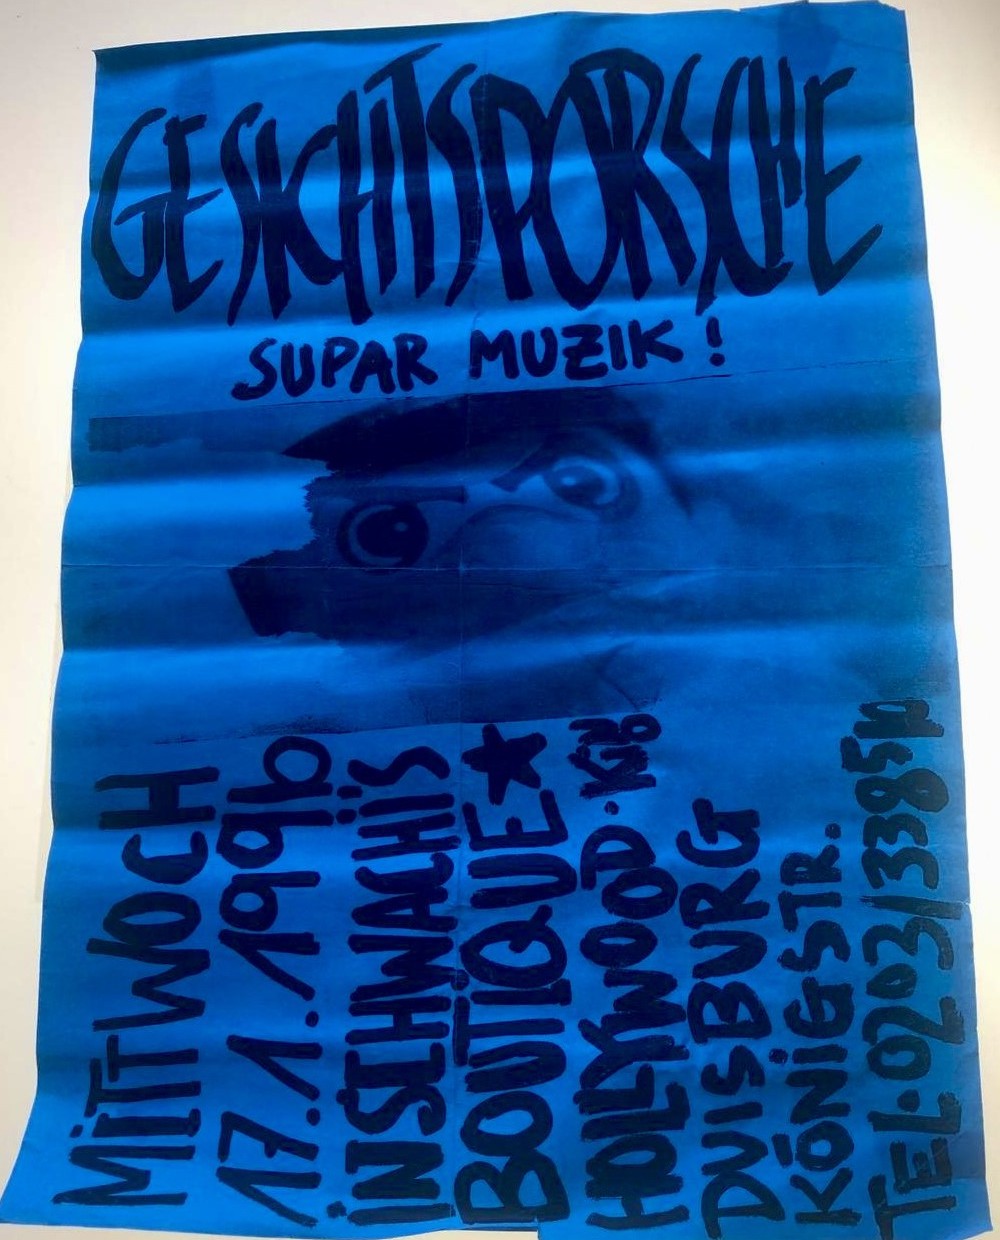 GESICHTSPORSCHE
SUPAR MUZIK !
MiTTWOCH
17.1.1996
iNSCHWACHiS
BOUTIQUE★
HOLLYWOOD·
DUiSBURG
KÖNiGSTR.
TEL.